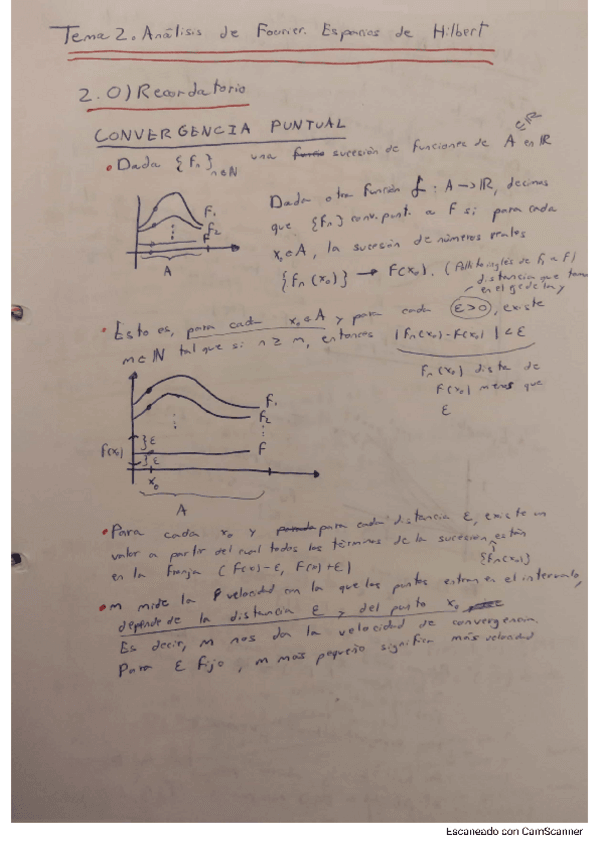 Tema 2. Análisis de Fourier. Espacios de Hilbert
2.0) Recordatorio
CONVERGENCIA PUNTUAL
• Dada {Fn} n∈N una sucesión de funciones de A en R
∈R
Dada otra función f : A → R, decimos
que {Fn} conv. punt. a F si para cada
x₀∈A, la sucesión de números reales
{fn (x₀)} → F(x₀).
distancia que
F₁
F₂
F
A
• Esto es, para cada x₀∈A y para cada ε>0, existe
m∈N tal que si n ≥ m, entonces |Fn(x₀)-F(x₀)| < ε
Fn(x₀) dista de
F(x₀) menos que
ε
F₁
F₂
F
F(x₀)
}ε
}ε
x₀
A
• Para cada x₀ y para cada distancia ε, existe un
valor a partir del cual todos los términos de la sucesión están
{fn(x₀)}
en la franja (F(x)-ε, F(x)+ε)
• m mide la velocidad con la que los puntos entran en el intervalo,
depende de la distancia ε y del punto x₀
Es decir, m nos da la velocidad de convergencia.
Para ε fijo, m más pequeño significa más velocidad
Escaneado con CamScanner